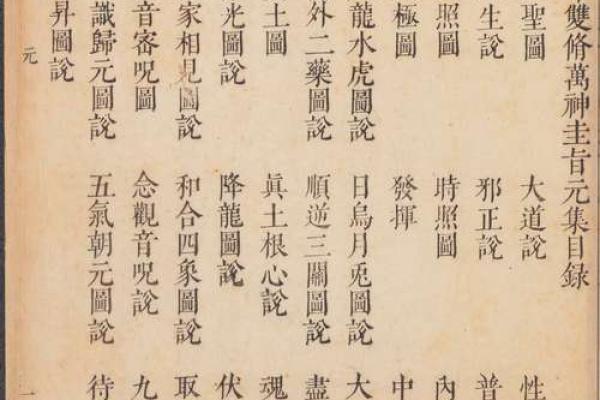 雙脩萬神圭旨元集目錄
聖圖 大道說 性
生說 邪正說 普
照圖 時照圖 內
極圖 發揮 中
龍水虎圖說 日烏月兎圖說 大
外二藥圖說 順逆三關圖說 盡
土圖 眞土根心說 魂
光圖說 降龍圖說 伏
家相見圖說 和合四象圖說 取
音密呪圖 念觀音呪說 九
識歸元圖說 五氣朝元圖說 待
昇圖說
元 一